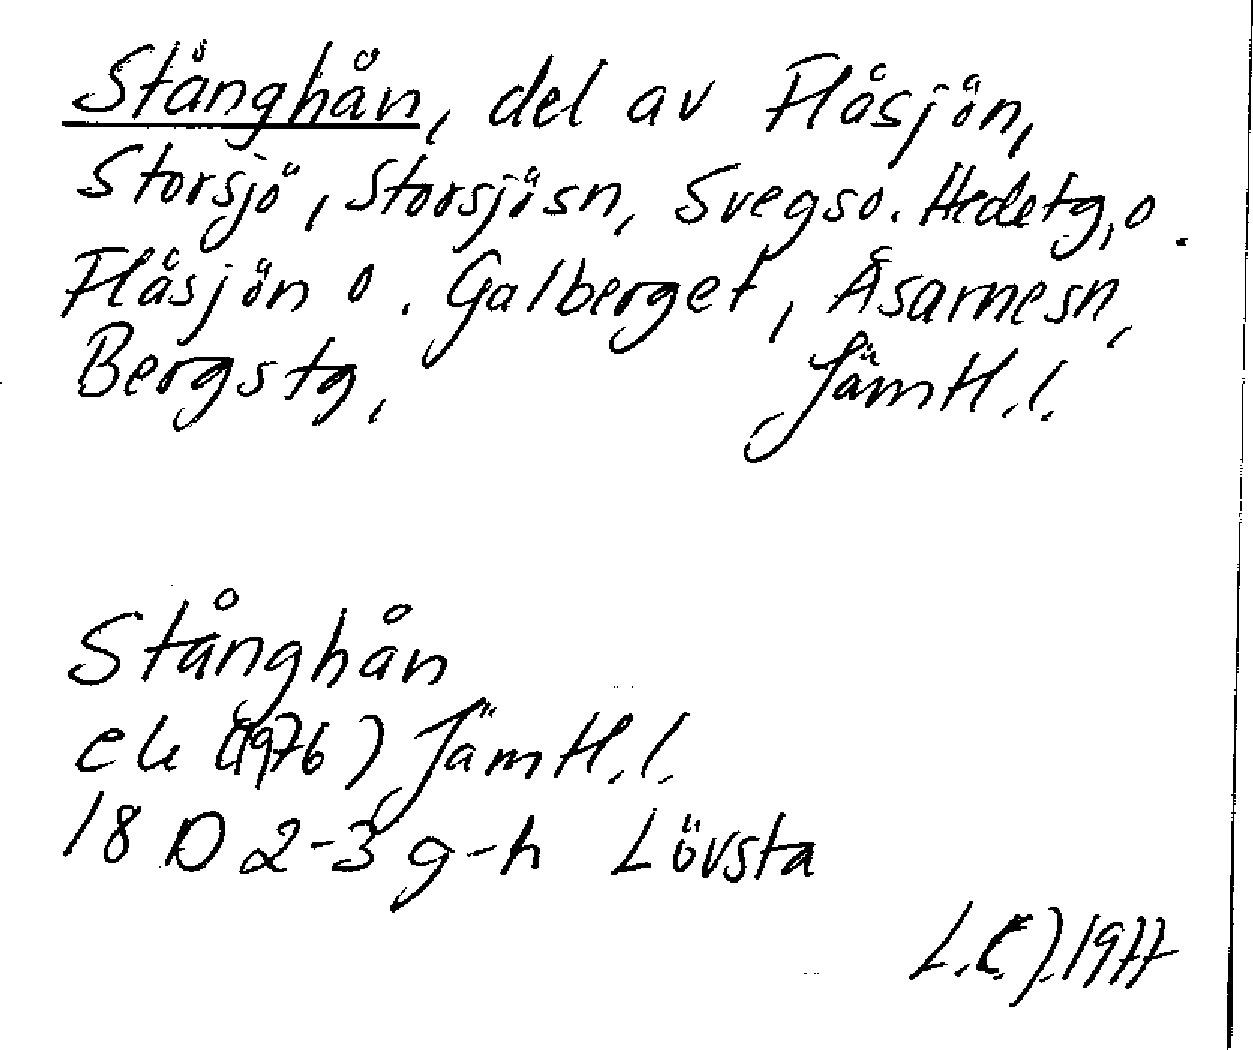 Stånghån, del av Flåsjön,
Storsjö, Storsjösn, Svegso. Hedetg, o.
Flåsjön o. Galberget, Åsarnesn,
Bergstg, Jämtl.l.
Stånghån
ek (1976) Jämtl.l.
18 D 2-3 g-h Lövsta
1977